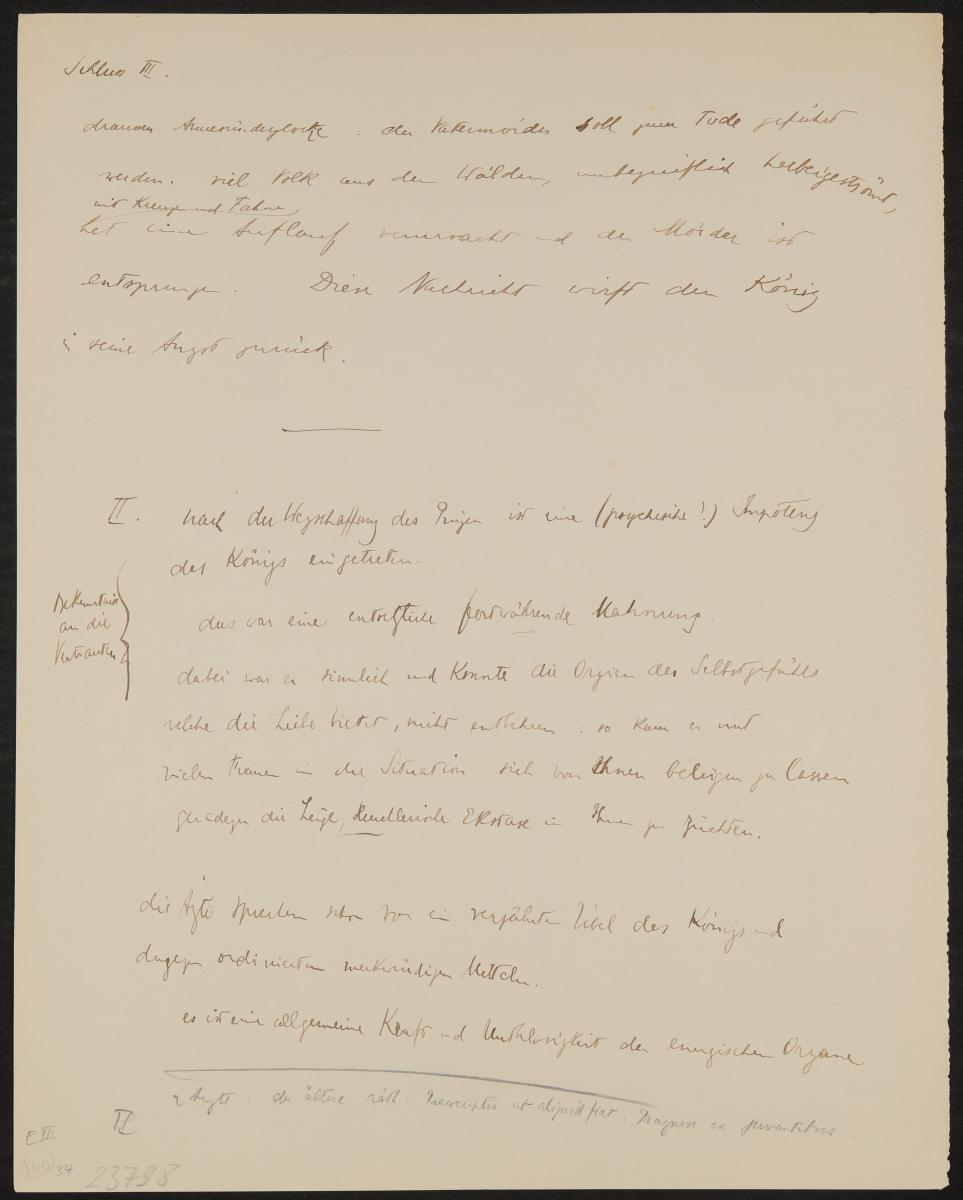 Schluss III.
draussen Armesünderglocke : der Vatermörder soll zum Tode geführt
werden. viel Volk aus den Wäldern, unbegreiflich herbeigeströmt,
mit Kreuz und Fahne,
hat einen Auflauf verursacht und der Mörder ist
entsprungen. Diese Nachricht wirft den König
in seine Angst zurück.
II. nach der Wegschaffung des Prinzen ist eine (psychische!) Impotenz
des Königs eingetreten.
Bekenntnis
an die
Vertrauten
das war eine entsetzliche fortwährende Mahnung.
dabei war er sinnlich und konnte die Orgien des Selbstgefühls
welche die Liebe bietet, nicht entbehren : so kam er mit
vielen Frauen in die Situation sich von Ihnen belügen zu lassen
geradezu die Lüge, heuchlerische Ekstase in Ihnen zu züchten.
die Ärzte sprechen schon von ein verjährten Übel des Königs und
dagegen ordinierten merkwürdigen Mitteln.
es ist eine allgemeine Kraft und Muthlosigkeit der energischen Organe
2 Ärzte : der ältere räth : ut aliquid fiat : Diagnose ex juvantibus
IV
E III
160 34 23798